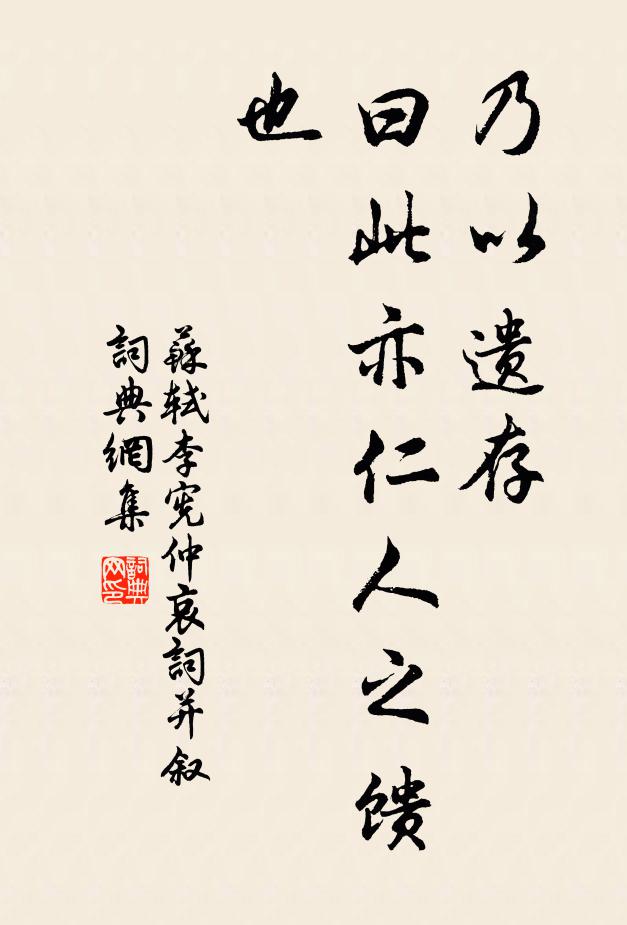 乃以遗存
曰此亦仁人之馈
也
蘇軾李宪仲哀詞并叙
詞典網集
詞典网印